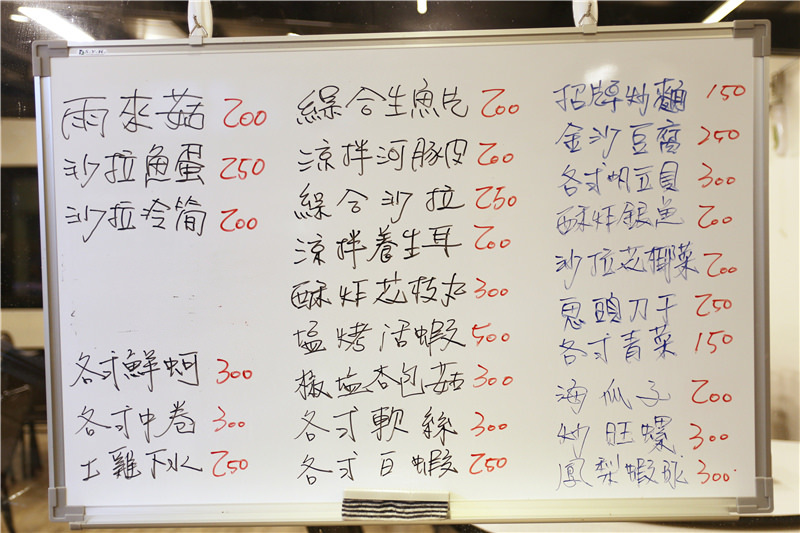 雨來菇 200
沙拉魚蛋 250
沙拉冷筍 200
各式鮮蚵 300
各式中卷 300
土雞下水 250
綜合生魚片 200
涼拌河豚皮 200
綜合沙拉 250
涼拌養生耳 200
酥炸花枝丸 300
塩烤活蝦 500
椒塩杏包菇 300
各式軟絲 300
各式白蝦 250
招牌炒麵 150
金沙豆腐 250
各式帆立貝 300
酥炸銀魚 200
沙拉花椰菜 200
鬼頭刀干 250
各式青菜 150
海瓜子 200
炒旺螺 300
鳳梨蝦球 300